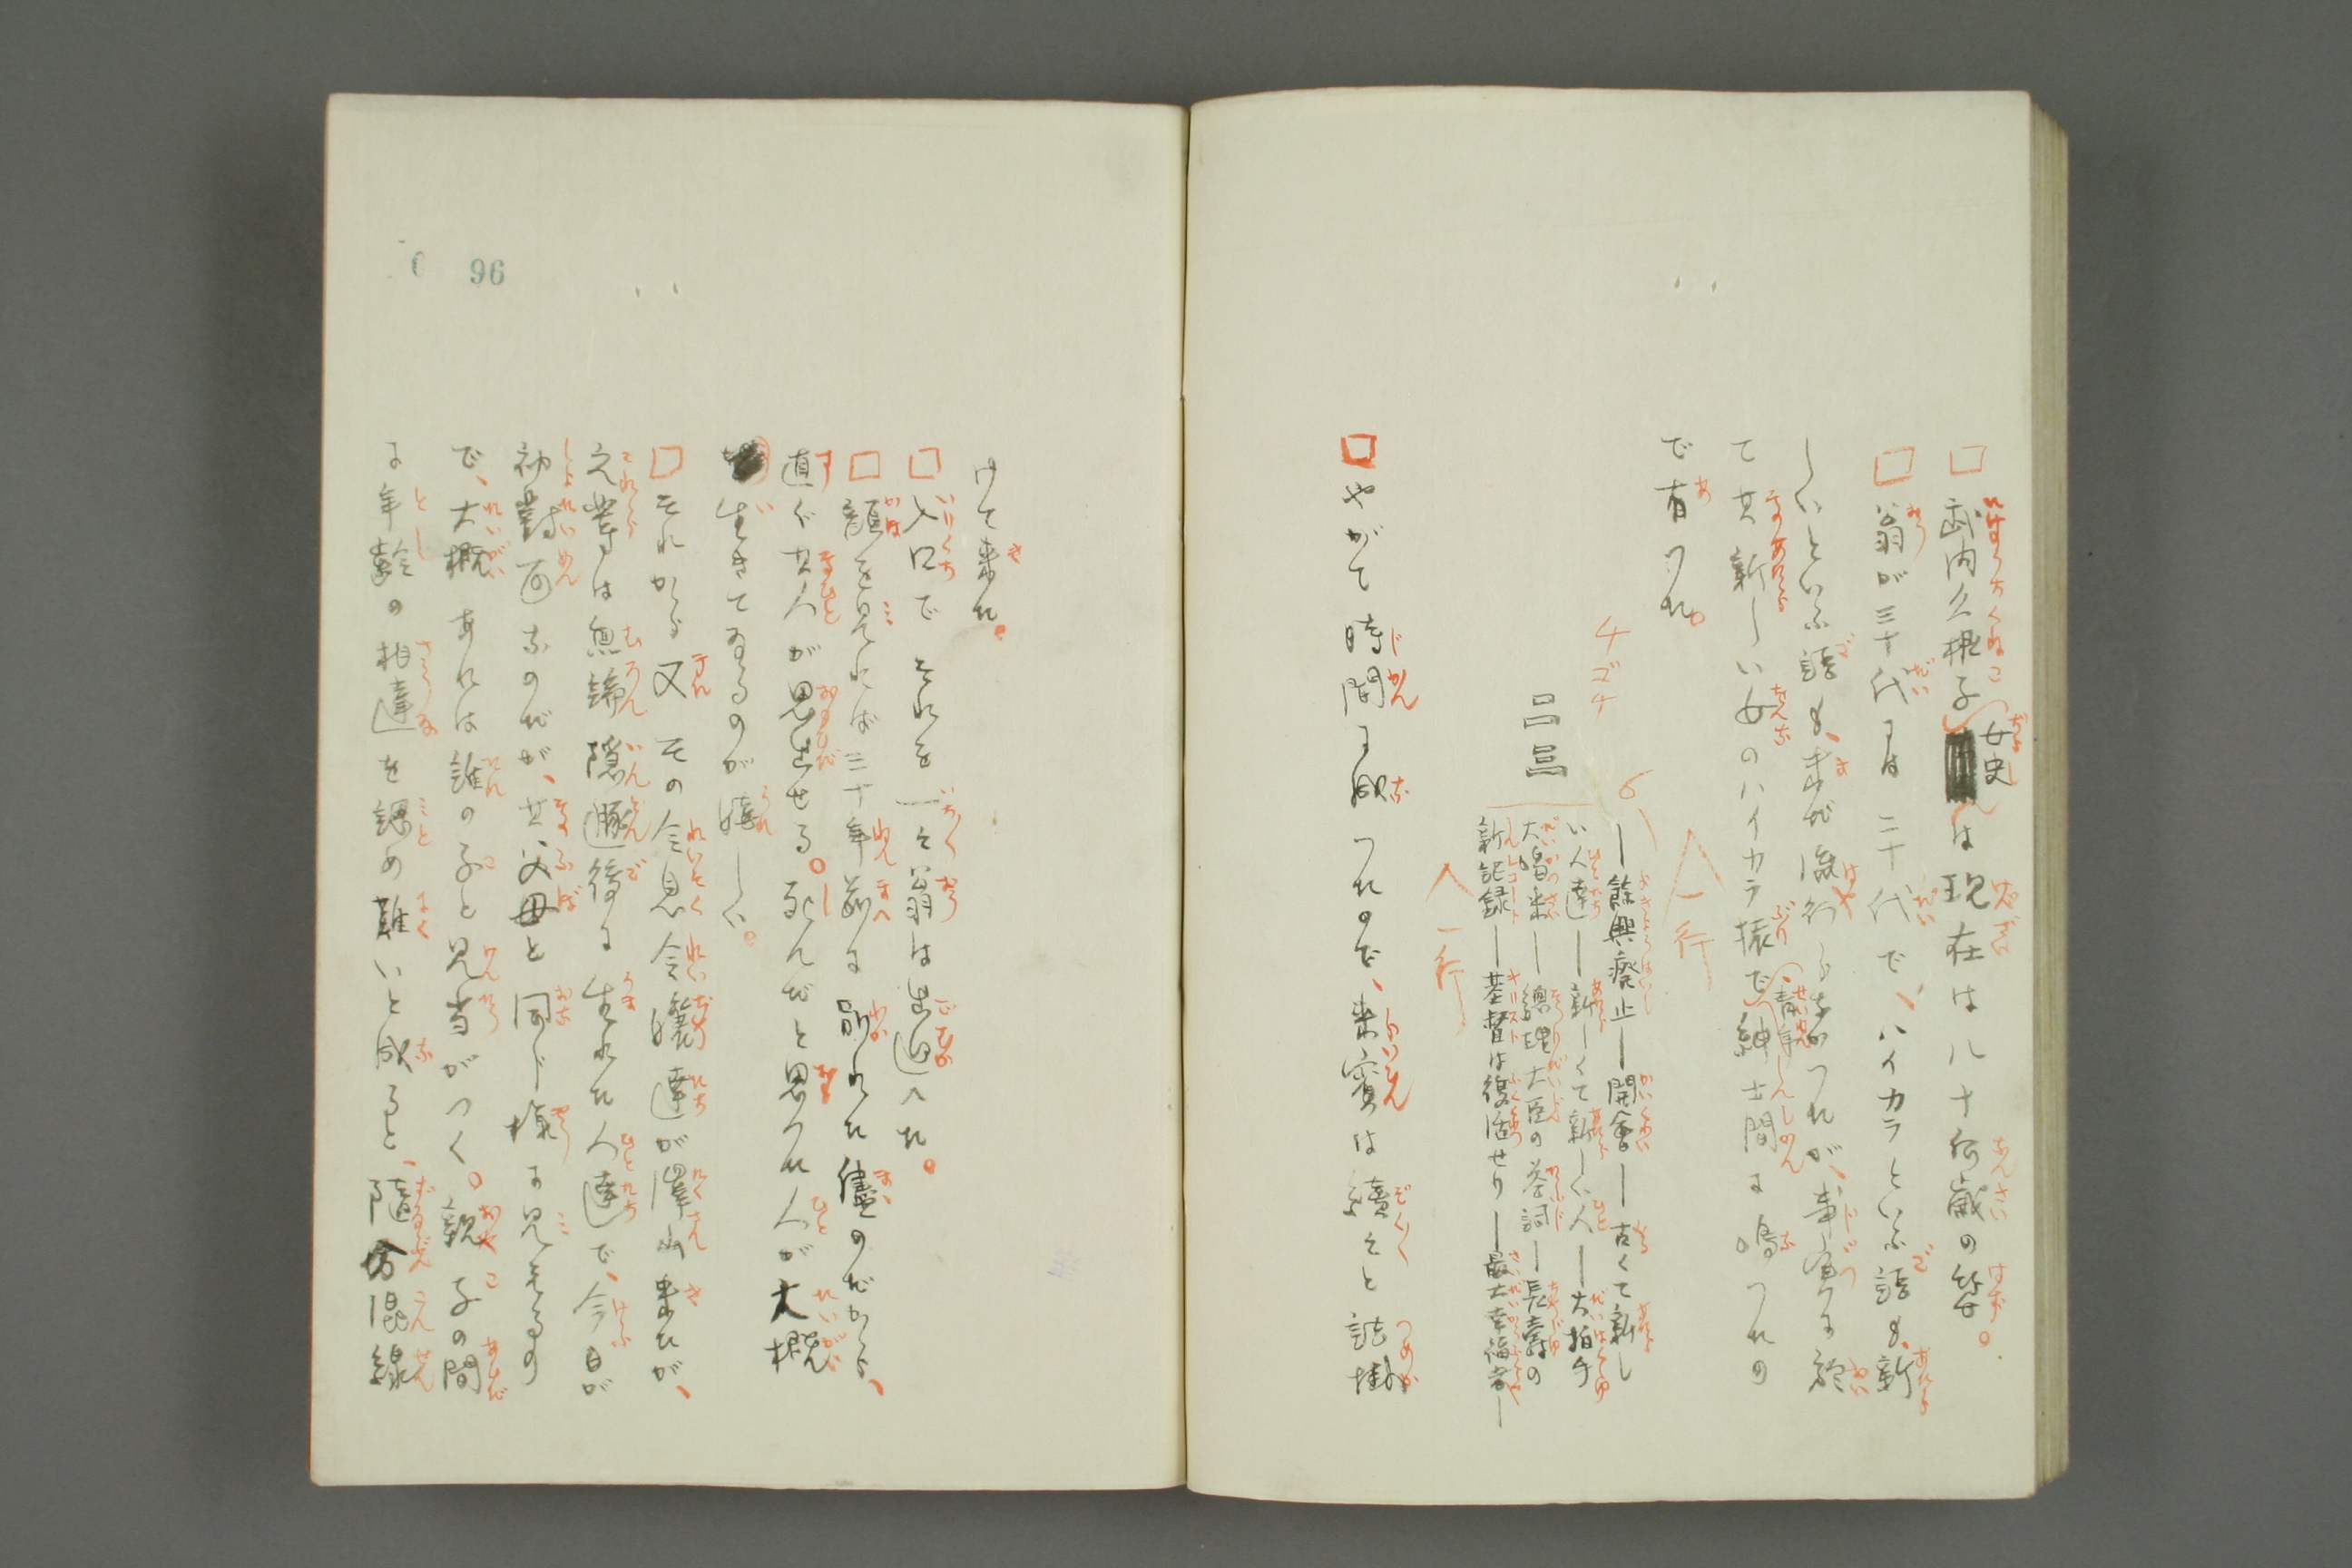 □武内久根子女史は現在は八十何歳の筈。
□翁が三十代には二十代で、ハイカラといふ語も、新
しいといふ語も、未だ流行らなかつたが、事實に於
て其新しい女のハイカラ振で青年紳士間に鳴つたの
で有つた。
四ゴチ
6
一行
三
三
―餘興癈止―開會―古くて新し
い人達―新しくて新しい人―大拍手
大喝采―總理大臣の答詞―長壽の
新記録―基督は復活せり―最大幸福者―
一行
□やがて時間に成つたので、來賓は續々と詰掛
けて来た。
□入口でそれを一々翁は出迎へた。
□顔を見れば三十年前に別れた儘のだから、
直ぐ其人が思出せる。死んだと思つた人が大概
生きてゐるのが嬉しい。
□それから又その令息令孃達が澤山来たが、
之等は無論隠遯後に生れた人達で、今日が
初對面なのだが、其父母と同じ様に見えるの
で、大概あれは誰の子と見当がつく。親子の間
に年齡の相違を認め難いと成ると、隨分混線
96